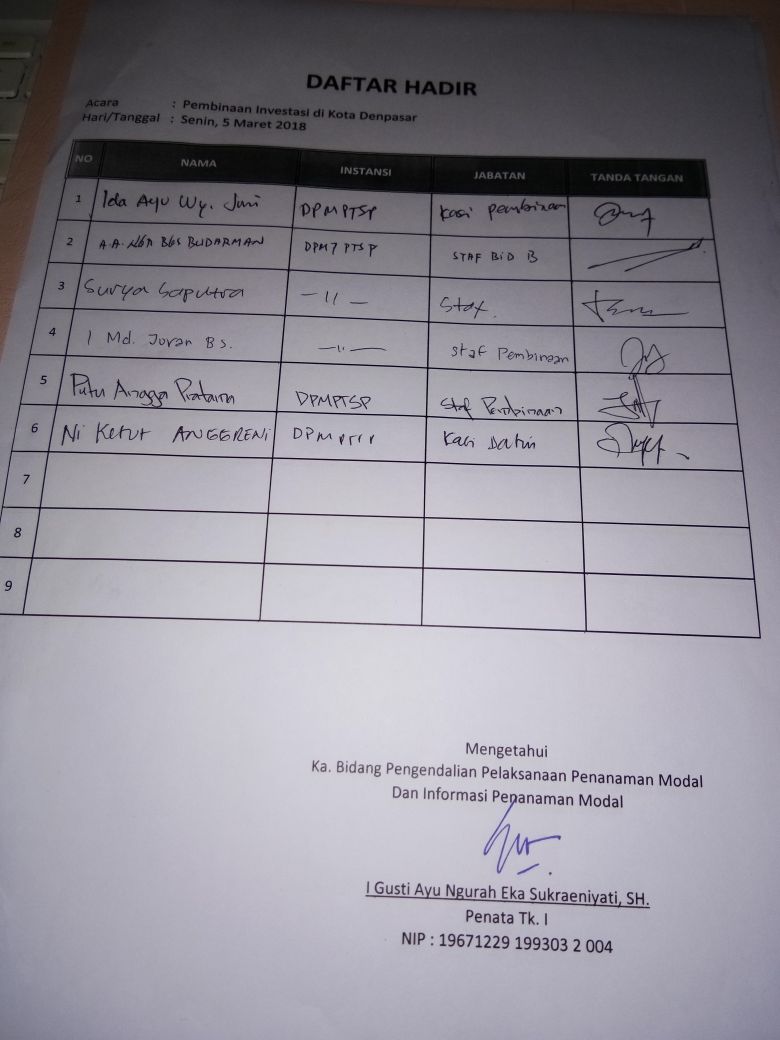 DAFTAR HADIR
Acara : Pembinaan Investasi di Kota Denpasar
Hari/Tanggal : Senin, 5 Maret 2018
NO NAMA INSTANSI JABATAN TANDA TANGAN
1 Ida Ayu Wy. Juni DPMPTSP Kasi Pembinaan
2 A.A. NGR BGS BUDARMAN DPMPTSP STAF BID B
3 Surya Saputra -11- Staf.
4 I Md. Jovan Bs. -11- Staf Pembinaan
5 Putu Angga Pratama DPMPTSP Staf Pembinaan
6 Ni Ketut ANGGRENI Kasi Datin
7
8
9
Mengetahui
Ka. Bidang Pengendalian Pelaksanaan Penanaman Modal
Dan Informasi Penanaman Modal
I Gusti Ayu Ngurah Eka Sukraeniyati, SH.
Penata Tk. I
NIP : 19671229 199303 2 004